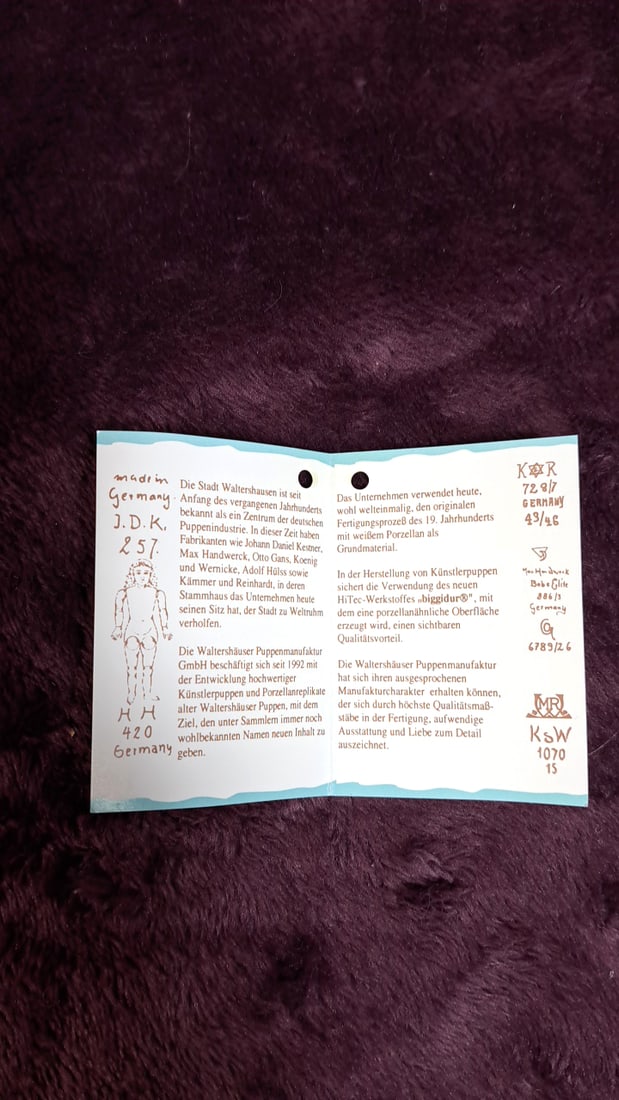 made in
Germany.
J.D.K.
257.
H H
420
Germany
Die Stadt Waltershausen ist seit
Anfang des vergangenen Jahrhunderts
bekannt als ein Zentrum der deutschen
Puppenindustrie. In dieser Zeit haben
Fabrikanten wie Johann Daniel Kestner,
Max Handwerck, Otto Gans, Koenig
und Wernicke, Adolf Hülss sowie
Kämmer und Reinhardt, in deren
Stammhaus das Unternehmen heute
seinen Sitz hat, der Stadt zu Weltruhm
verholfen.
Die Waltershäuser Puppenmanufaktur
GmbH beschäftigt sich seit 1992 mit
der Entwicklung hochwertiger
Künstlerpuppen und Porzellanreplikate
alter Waltershäuser Puppen, mit dem
Ziel, den unter Sammlern immer noch
wohlbekannten Namen neuen Inhalt zu
geben.
Das Unternehmen verwendet heute,
wohl welteinmalig, den originalen
Fertigungsprozeß des 19. Jahrhunderts
mit weißem Porzellan als
Grundmaterial.
In der Herstellung von Künstlerpuppen
sichert die Verwendung des neuen
HiTec-Werkstoffes „biggidur®", mit
dem eine porzellanähnliche Oberfläche
erzeugt wird, einen sichtbaren
Qualitätsvorteil.
Die Waltershäuser Puppenmanufaktur
hat sich ihren ausgesprochenen
Manufakturcharakter erhalten können,
der sich durch höchste Qualitätsmaß-
stäbe in der Fertigung, aufwendige
Ausstattung und Liebe zum Detail
auszeichnet.
K R
728/7
GERMANY
43/46
Max Handwerck
Bebe Elite
286/3
Germany
G
6789/26
MR
K&W
1070
15